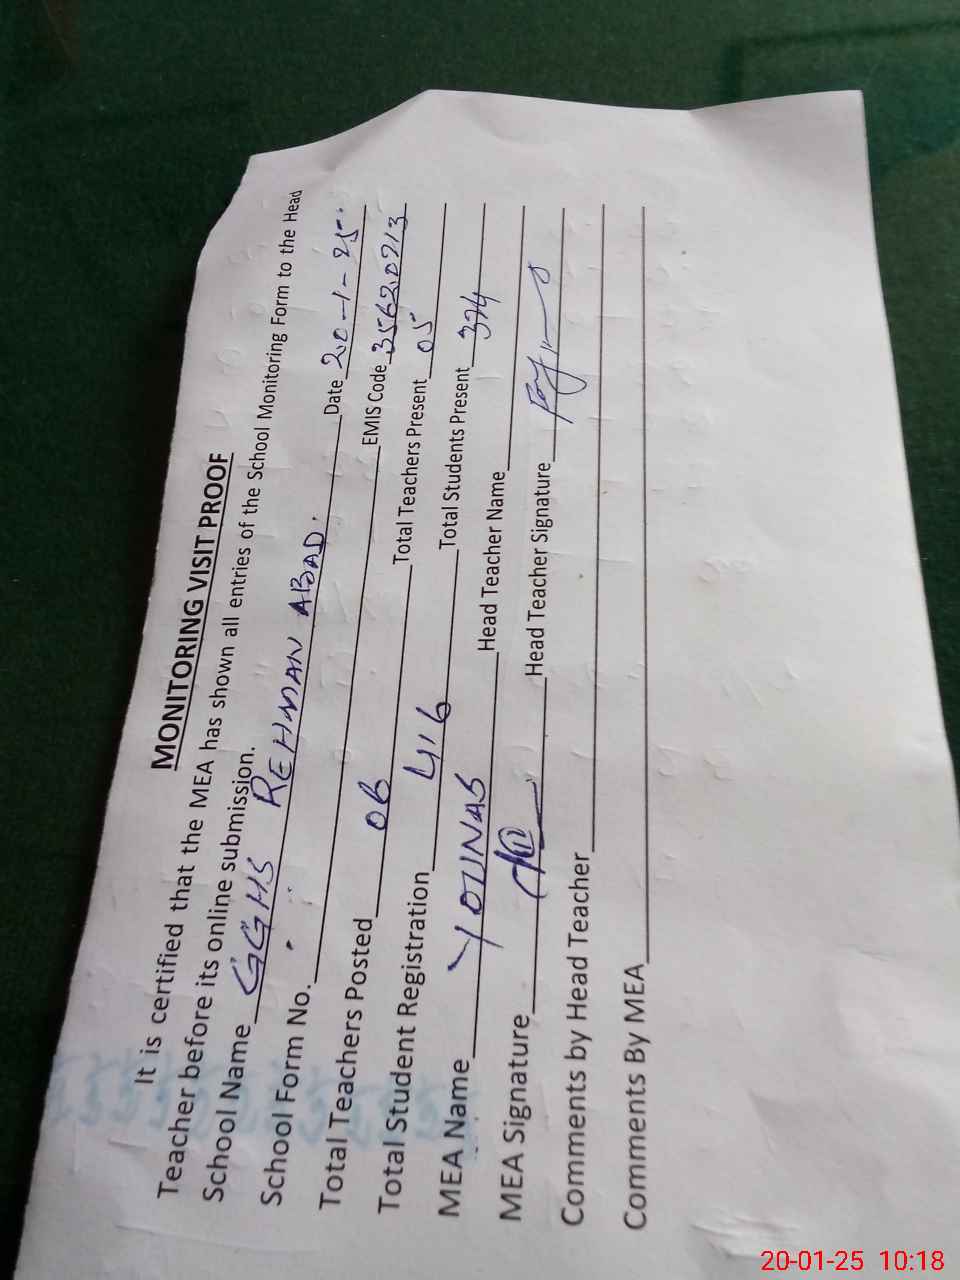 MONITORING VISIT PROOF
It is certified that the MEA has shown all entries of the School Monitoring Form to the Head
Teacher before its online submission.
School Name GGHS REHMAN ABAD. Date 20-1-25.
School Form No. EMIS Code 35620213
Total Teachers Posted 06 Total Teachers Present 05
Total Student Registration 416 Total Students Present 374
MEA Name YOUNAS Head Teacher Name
MEA Signature Head Teacher Signature
Comments by Head Teacher
Comments By MEA
20-01-25 10:18